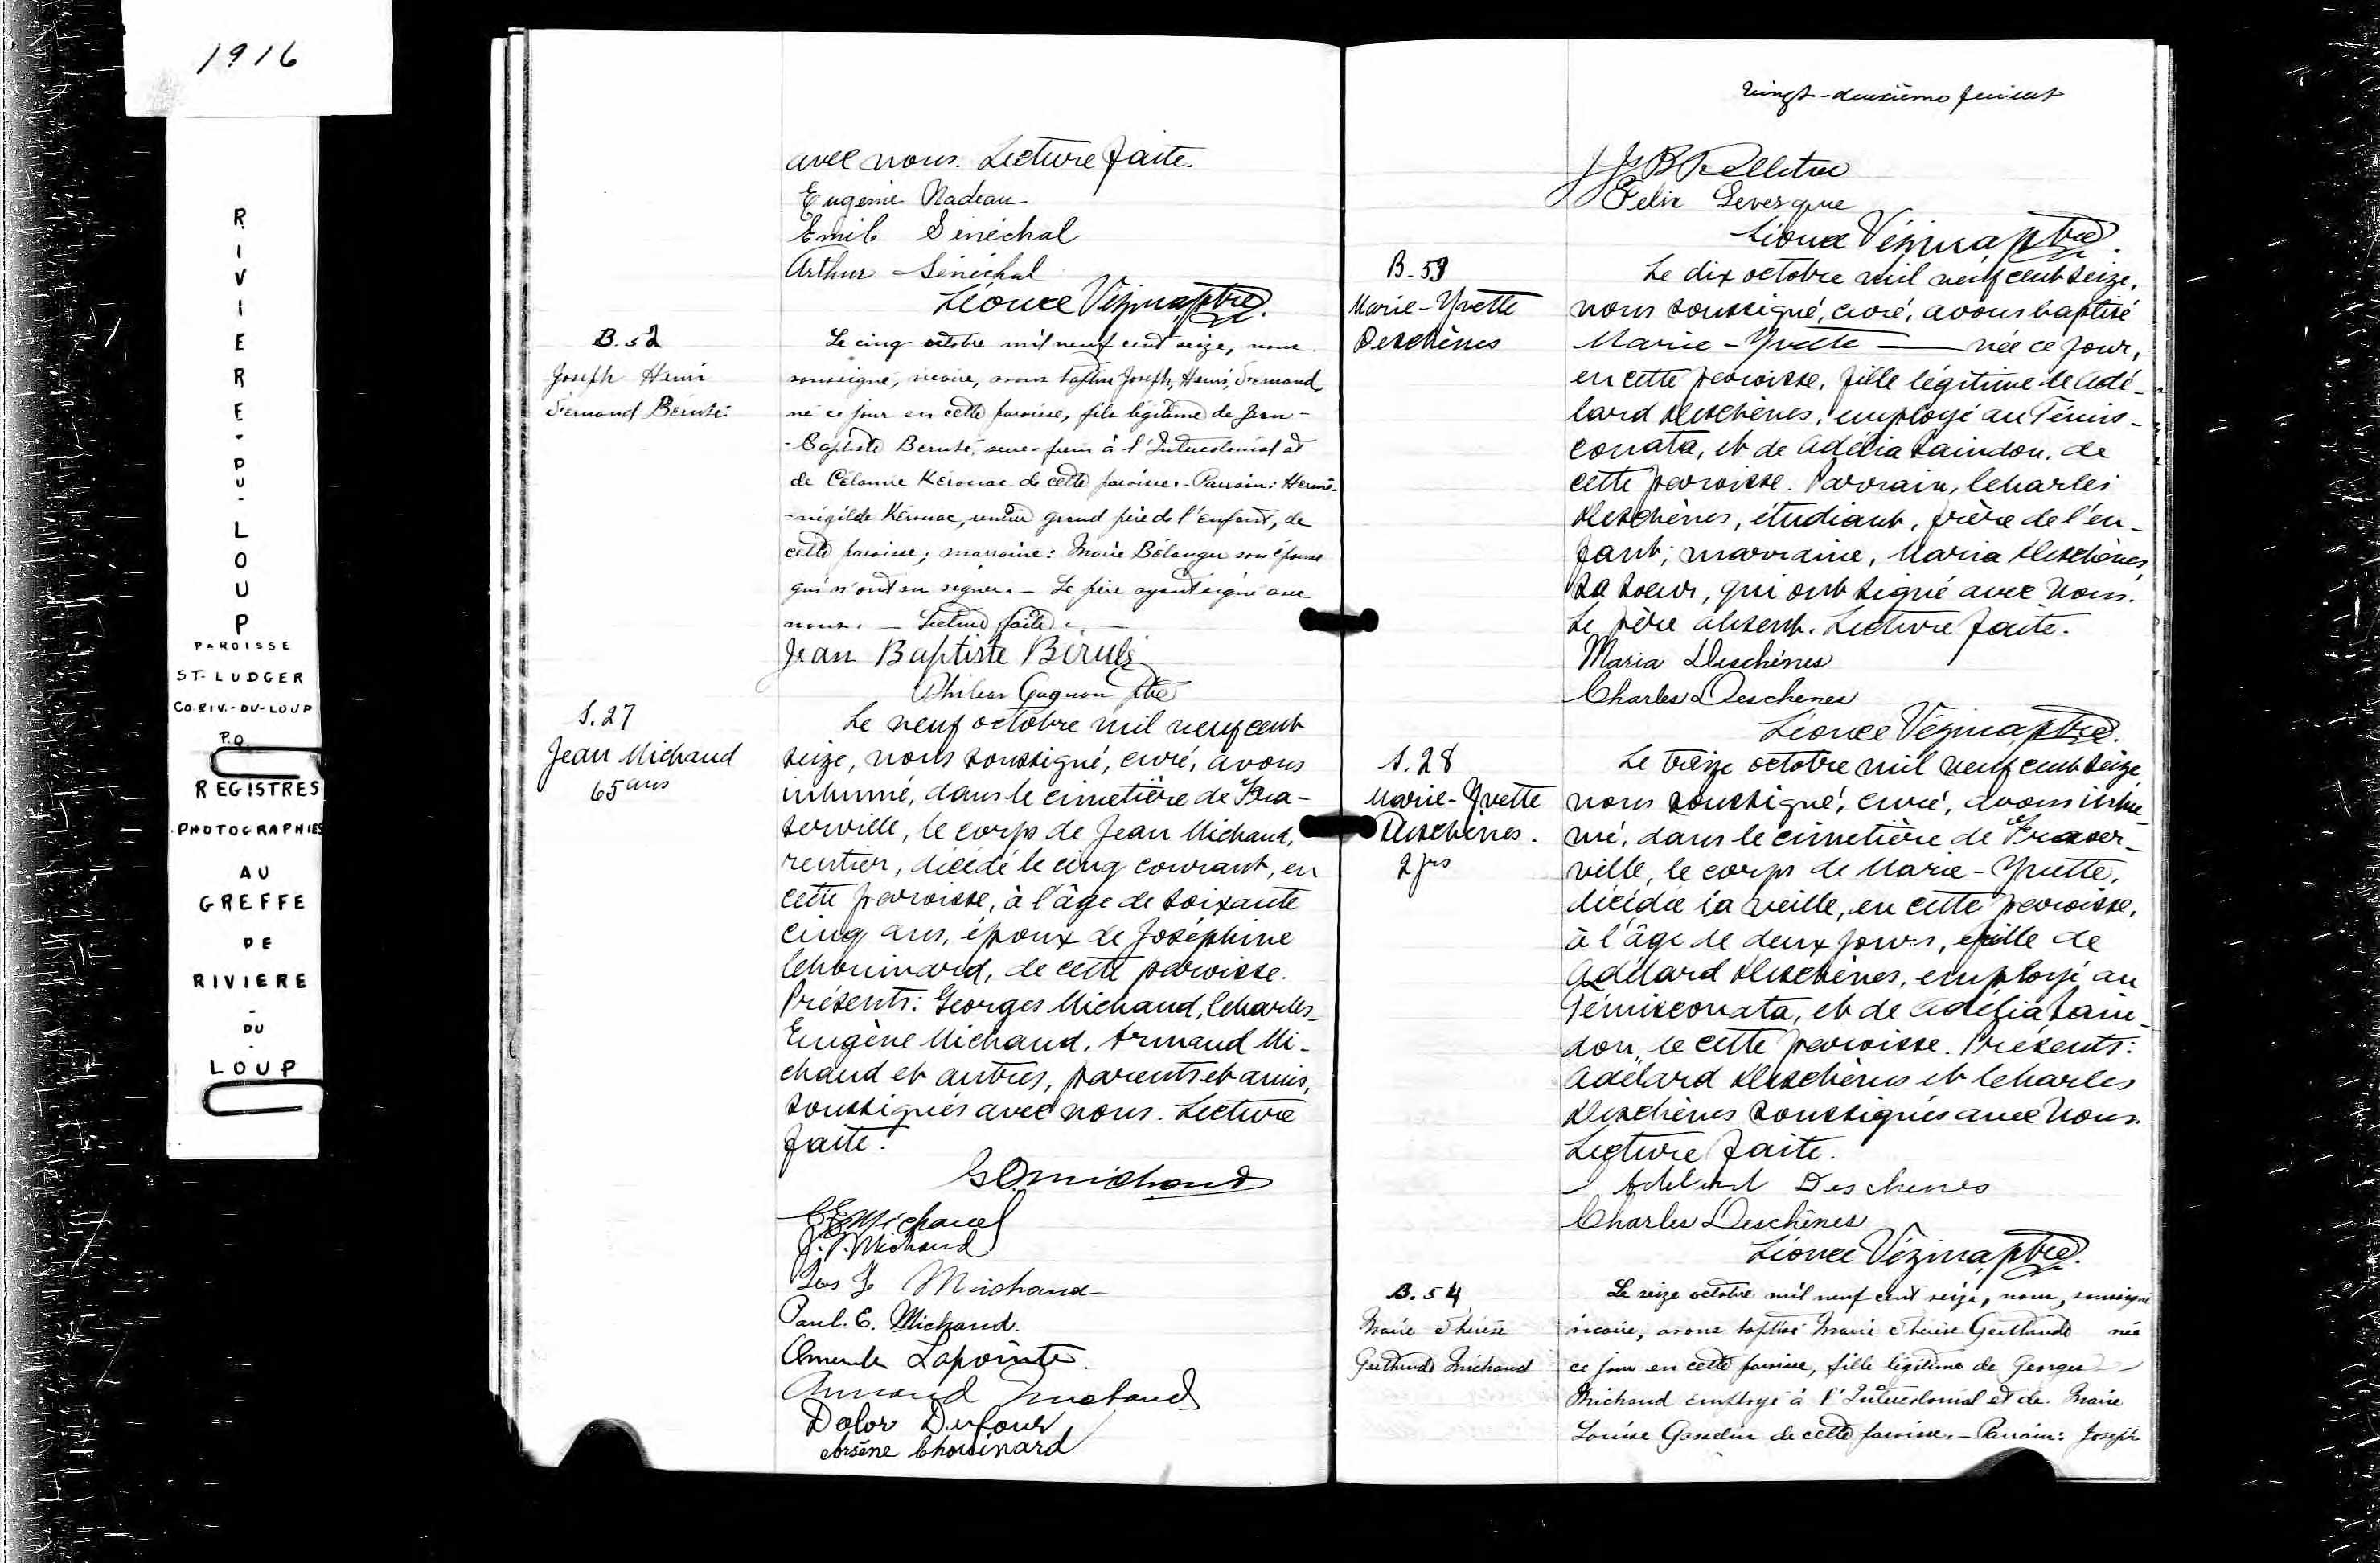 1916
RIVIERE-DU-LOUP
PAROISSE
ST-LUDGER
CO. RIV.-DU-LOUP
P.Q.
REGISTRES
PHOTOGRAPHIES
AU
GREFFE
DE
RIVIERE
-
DU
-
LOUP
avec nous. Lecture faite.
Eugénie Nadeau
Emile Sénéchal
Arthur Sénéchal
Léonce Vézina, ptre.
B. 52
Joseph Henri
Fernand Bérubé
Le cinq octobre mil neuf cent seize, nous
soussigné, vicaire, avons baptisé Joseph, Henri, Fernand
né ce jour en cette paroisse, fils légitime de Jean-
-Baptiste Bérubé, serre-frein à l'Intercolonial et
de Célanie Kérouac de cette paroisse.- Parrain: Hermé-
-négilde Kérouac, rentier grand père de l'enfant, de
cette paroisse; marraine: Marie Bélanger son épouse
qui n'ont su signer. - Le père ayant signé avec
nous. - Lecture faite. -
Jean Baptiste Bérubé
Gagnon Ptre
S. 27
Jean Michaud
65 ans
Le neuf octobre mil neuf cent
seize, nous soussigné, curé, avons
inhumé, dans le cimetière de Fra-
serville, le corps de Jean Michaud,
rentier, décédé le cinq courant, en
cette paroisse, à l'âge de soixante
cinq ans, époux de Joséphine
Chouinard, de cette paroisse.
Présents: Georges Michaud, Charles-
Eugène Michaud, Armand Mi-
chaud et autres, parents et amis,
soussignés avec nous. Lecture
faite.
Michaud
C E Michaud
J. P. Michaud
Michaud
Paul. E. Michaud.
Lapointe.
Armand Michaud
Dolor Dufour
Arsène Chouinard
vingt-deuxième feuillet
J. B. Pelletier
Felix Levesque
Léonce Vézina, ptre.
B. 53
Marie-Yvette
Deschènes
Le dix octobre mil neuf cent seize,
nous soussigné, curé, avons baptisé
Marie-Yvette — née ce jour,
en cette paroisse, fille légitime de Adé-
lard Deschènes, employé au Témis-
couata, et de Adélia Saindon, de
cette paroisse. Parrain, Charles
Deschènes, étudiant, frère de l'en-
fant; marraine, Maria Deschènes,
sa soeur, qui ont signé avec nous.
Le père absent. Lecture faite.
Maria Deschènes
Charles Deschenes
Léonce Vézina, ptre.
S. 28
Marie-Yvette
Deschènes.
2 jrs
Le treize octobre mil neuf cent seize,
nous soussigné, curé, avons inhu-
mé, dans le cimetière de Fraser-
ville, le corps de Marie-Yvette,
décédée la veille, en cette paroisse,
à l'âge de deux jours, fille de
Adélard Deschènes, employé au
Témiscouata, et de Adélia Sain-
don, de cette paroisse. Présents:
Adélard Deschènes et Charles
Deschènes soussignés avec nous.
Lecture faite.
Adelard Deschenes
Charles Deschènes
Léonce Vézina, ptre.
B. 54
Marie Thérèse
Gertrude Michaud
Le seize octobre mil neuf cent seize, nous, soussigné
vicaire, avons baptisé Marie Thérèse Gertrude née
ce jour en cette paroisse, fille légitime de Georges
Michaud employé à l'Intercolonial et de Marie
Louise Gosselin de cette paroisse. - Parrain: Joseph